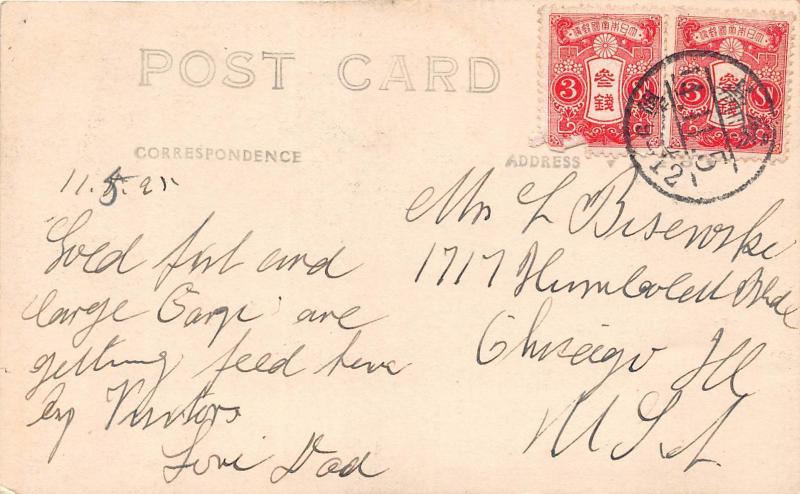 POST CARD
大日本帝國郵便
大日本帝國郵便
3 參錢
3 參錢
CORRESPONDENCE
ADDRESS
11.5.21
Gold fish and
large Carp are
getting feed here
by Visitors
Love Dad
Mrs L Biserorske
1717 Humboldt Blvd
Chicago Ill
U.S.A